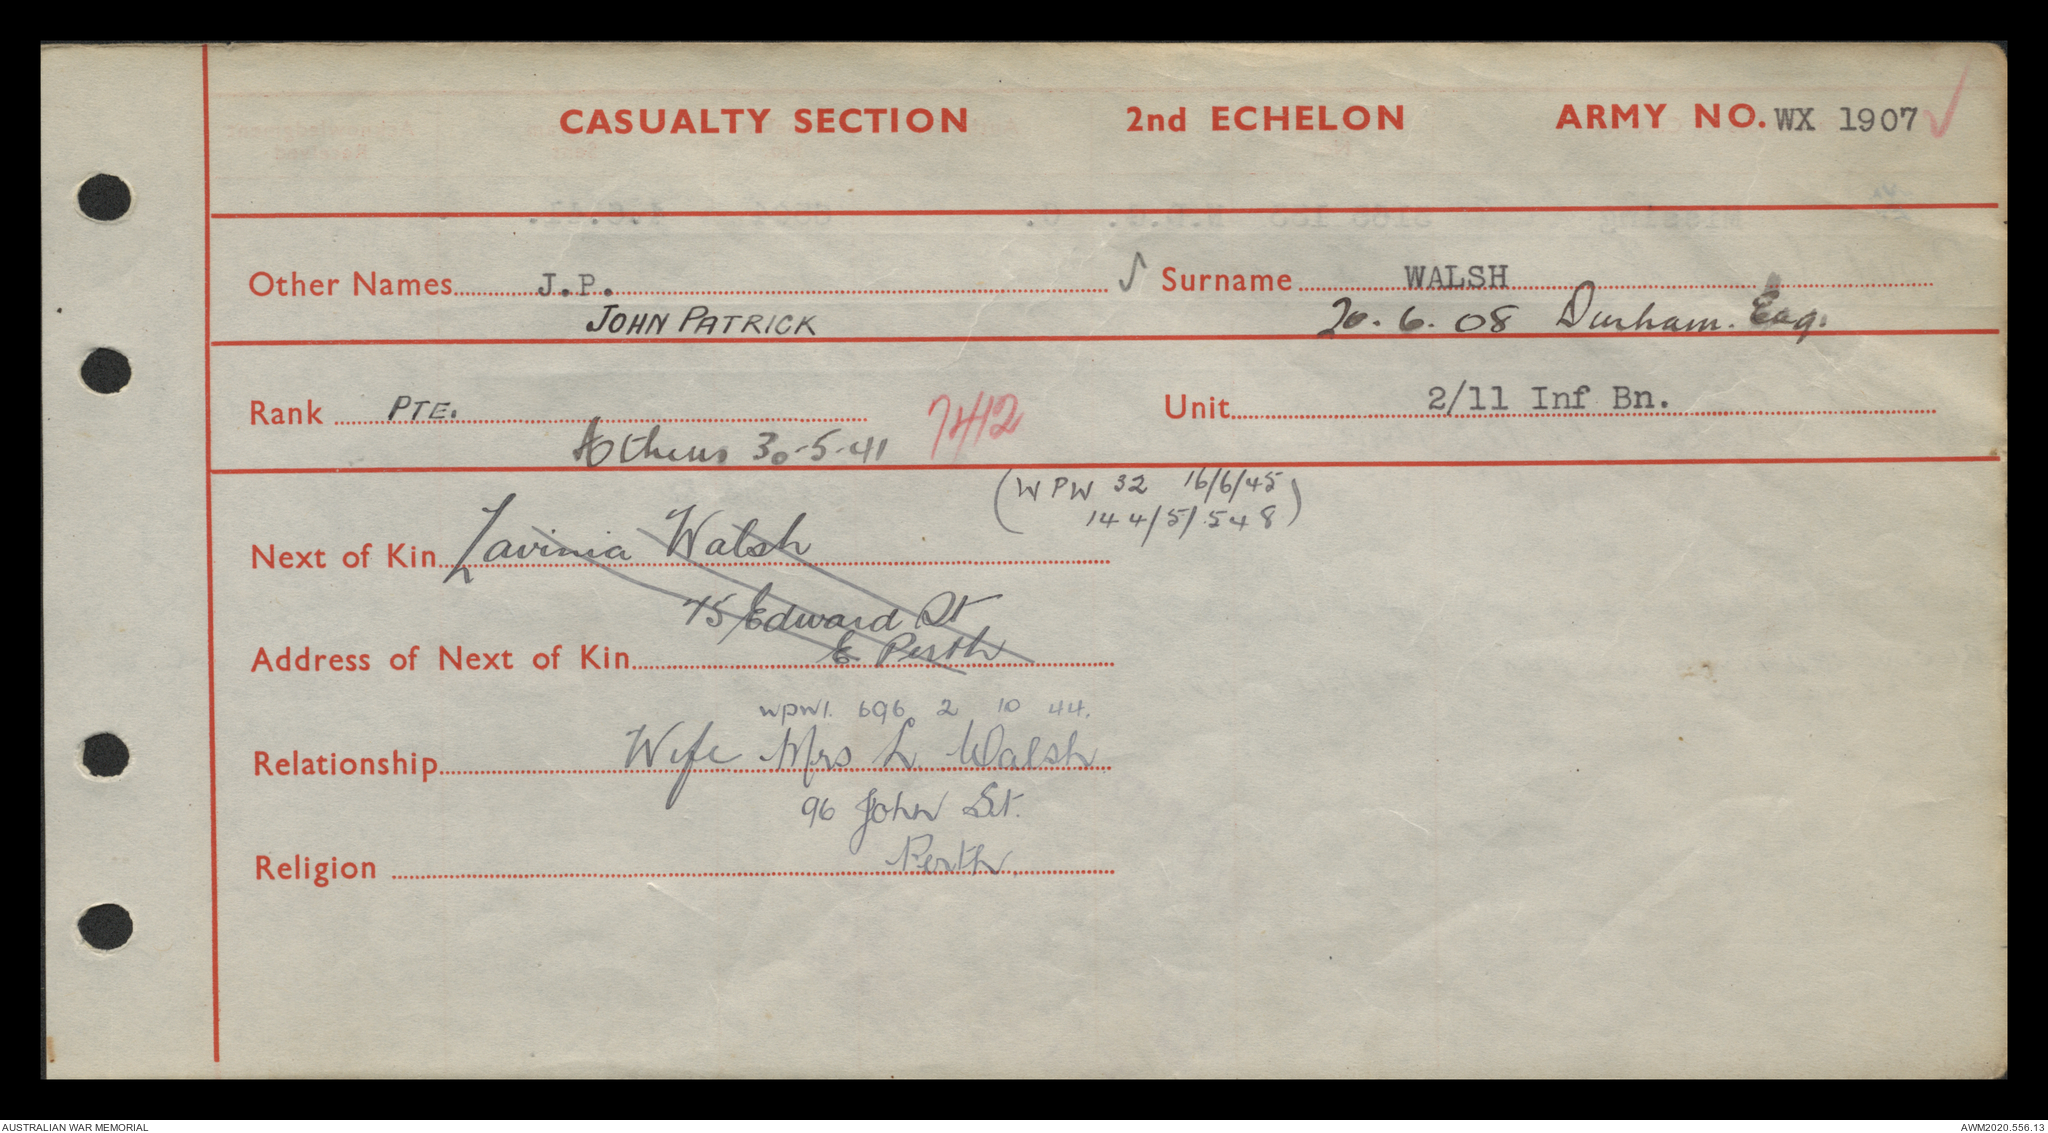 CASUALTY SECTION 2nd ECHELON ARMY NO. WX 1907
Other Names J.P. Surname WALSH
JOHN PATRICK 20.6.08 Durham. Eng.
Rank PTE. Unit 2/11 Inf Bn.
Athens 30-5-41 7412
(WPW 32 16/6/45
144/5/548)
Next of Kin Lavinia Walsh
75 Edward St
Address of Next of Kin E Perth
WPW1. 696 2 10 44.
Relationship Wife Mrs L. Walsh
96 John St.
Religion Perth.
AUSTRALIAN WAR MEMORIAL AWM2020.556.13